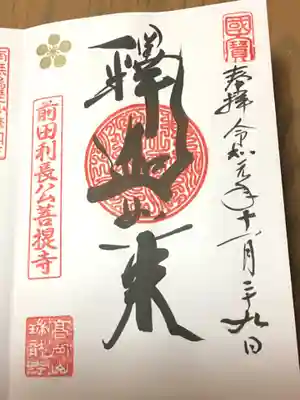 國寶
奉拝 令和元年十一月二十九日
釋迦如来
前田利長公菩提寺
高岡山
瑞龍寺